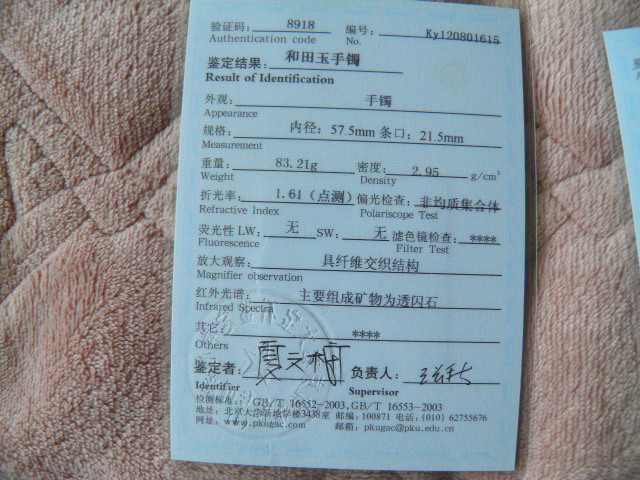 验证码: 8918 编号: Ky120801615
Authentication code No.
鉴定结果: 和田玉手镯
Result of Identification
外观: 手镯
Appearance
规格: 内径: 57.5mm 条口: 21.5mm
Measurement
重量: 83.21g 密度: 2.95 g/cm³
Weight Density
折光率: 1.61 (点测) 偏光检查: 非均质集合体
Refractive Index Polariscope Test
荧光性 LW: 无 SW: 无 滤色镜检查: ****
Fluorescence Filter Test
放大观察: 具纤维交织结构
Magnifier observation
红外光谱: 主要组成矿物为透闪石
Infrared Spectra
其它: ****
Others
鉴定者: 负责人:
Identifier Supervisor
检测标准: GB/T 16552-2003,GB/T 16553-2003
地址: 北京大学新地学楼3438室 邮编:100871 电话:(010) 62755676
网址: www.pkugac.com 邮箱: pkugac@pku.edu.cn